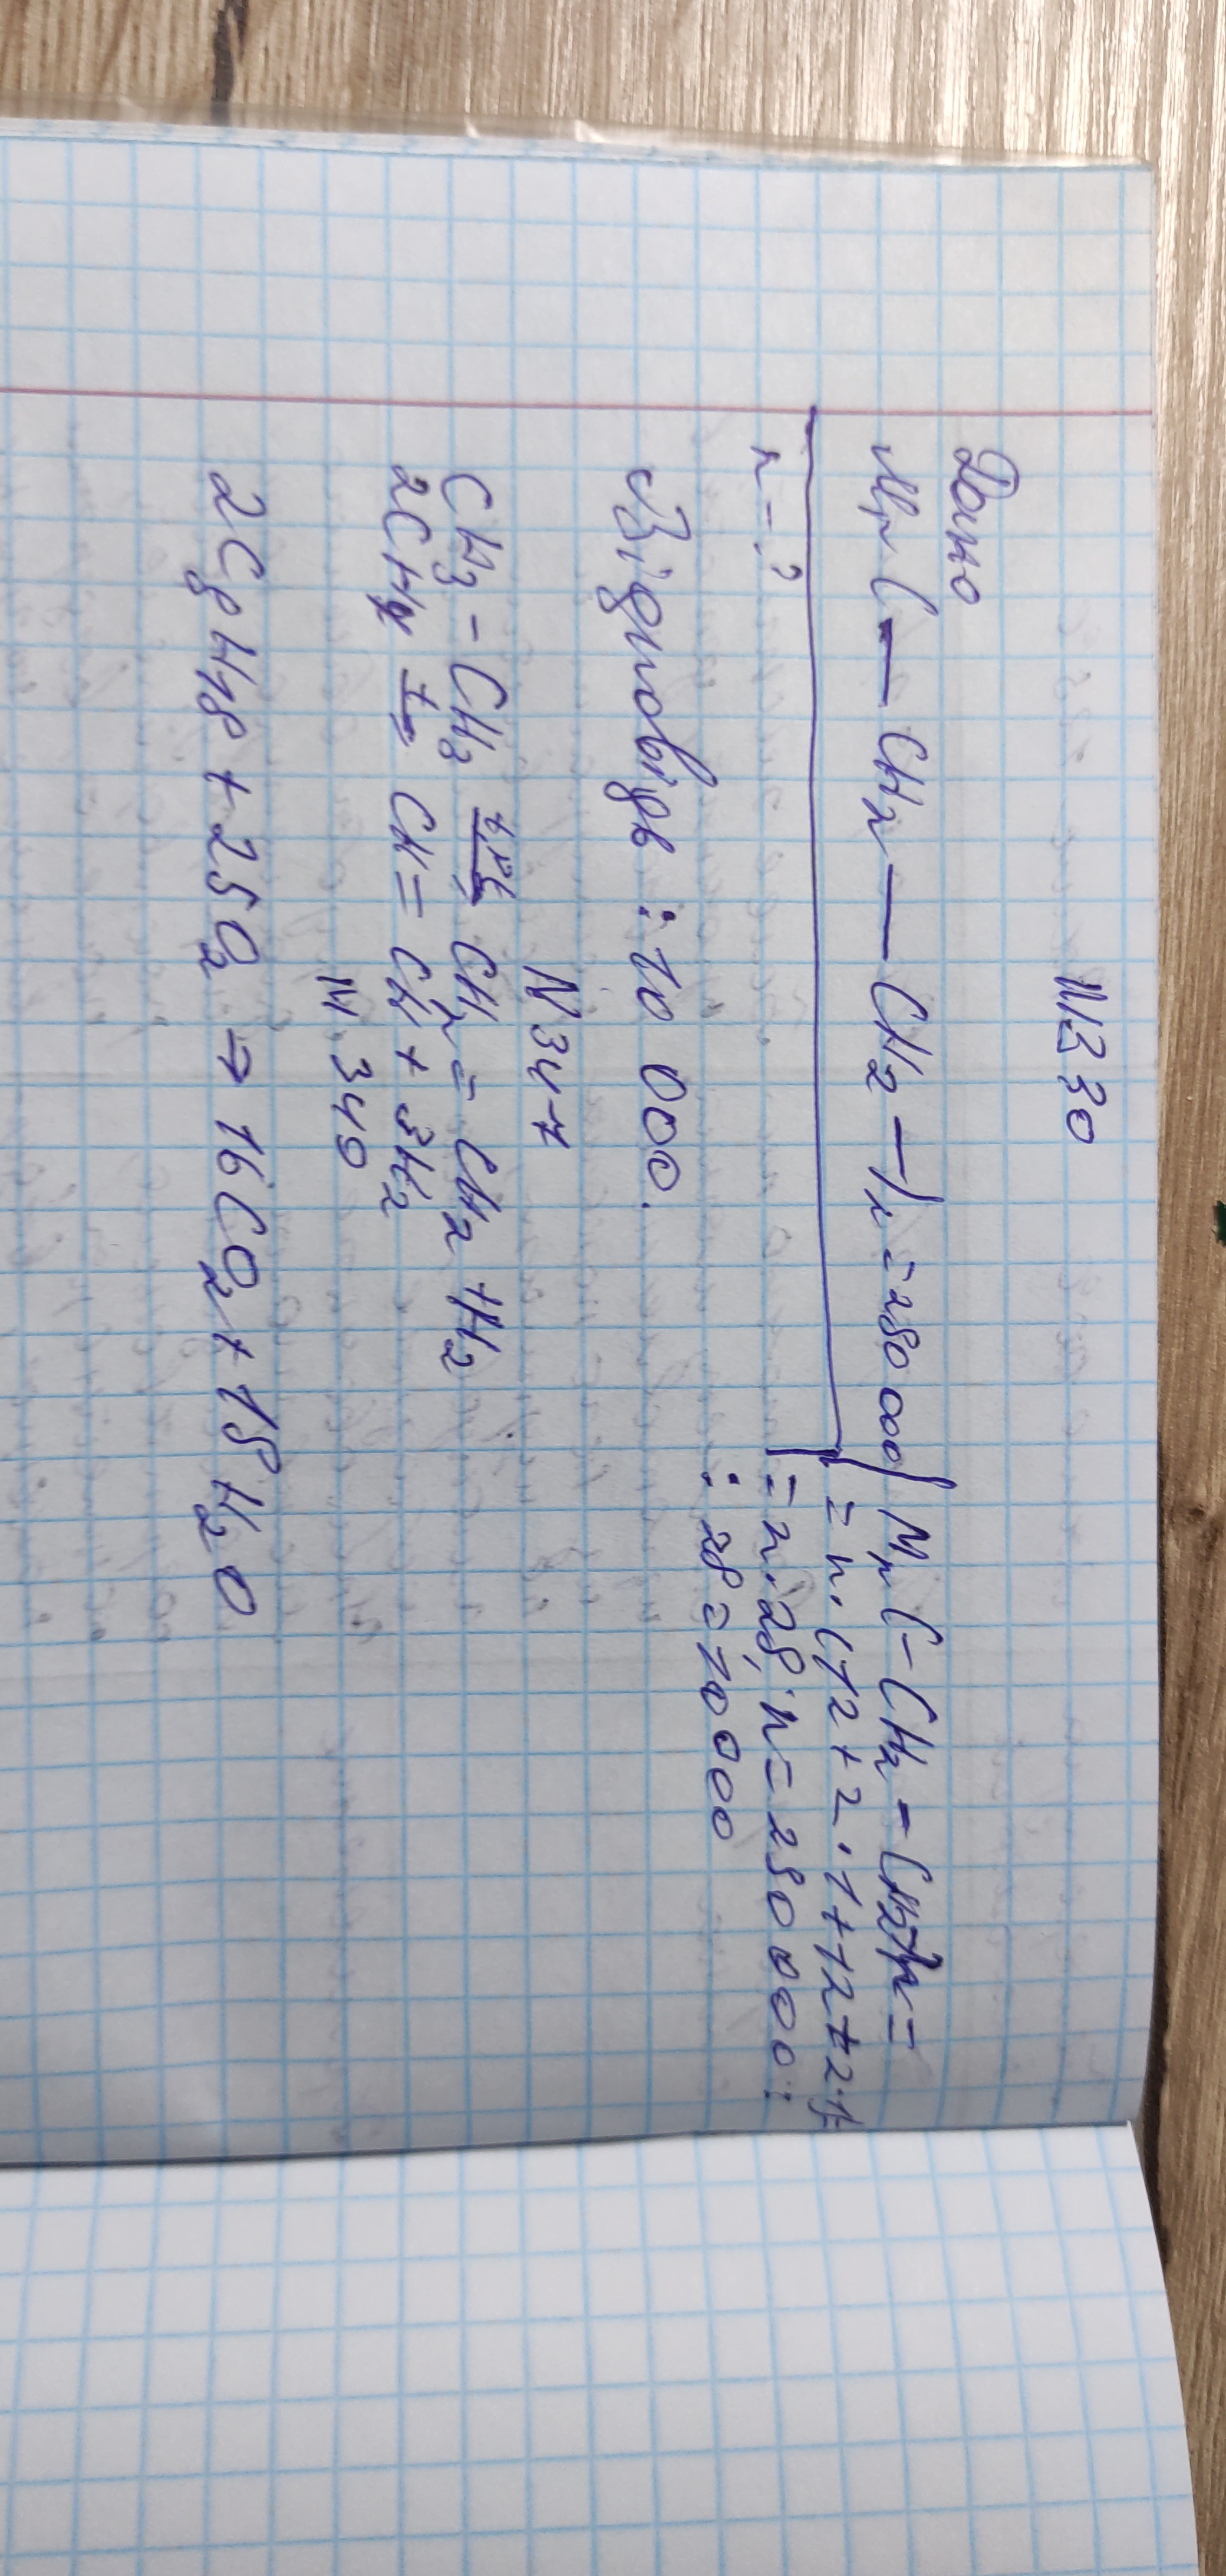 N330
Дано
Mr (— CH2 — CH2 —)n = 280 000
n - ?
Mr (- CH2 - CH2-)n =
= n · (12 + 2 · 1 + 12 + 2 · 1) =
= n · 28; n = 280 000 :
: 28 = 10000
Відповідь : 10 000.
N 347
CH3 - CH3 t, Ni→ CH2 = CH2 + H2
2CH4 t→ CH ≡ CH + 3H2
N. 349
2C8H18 + 25O2 → 16CO2 + 18H2O